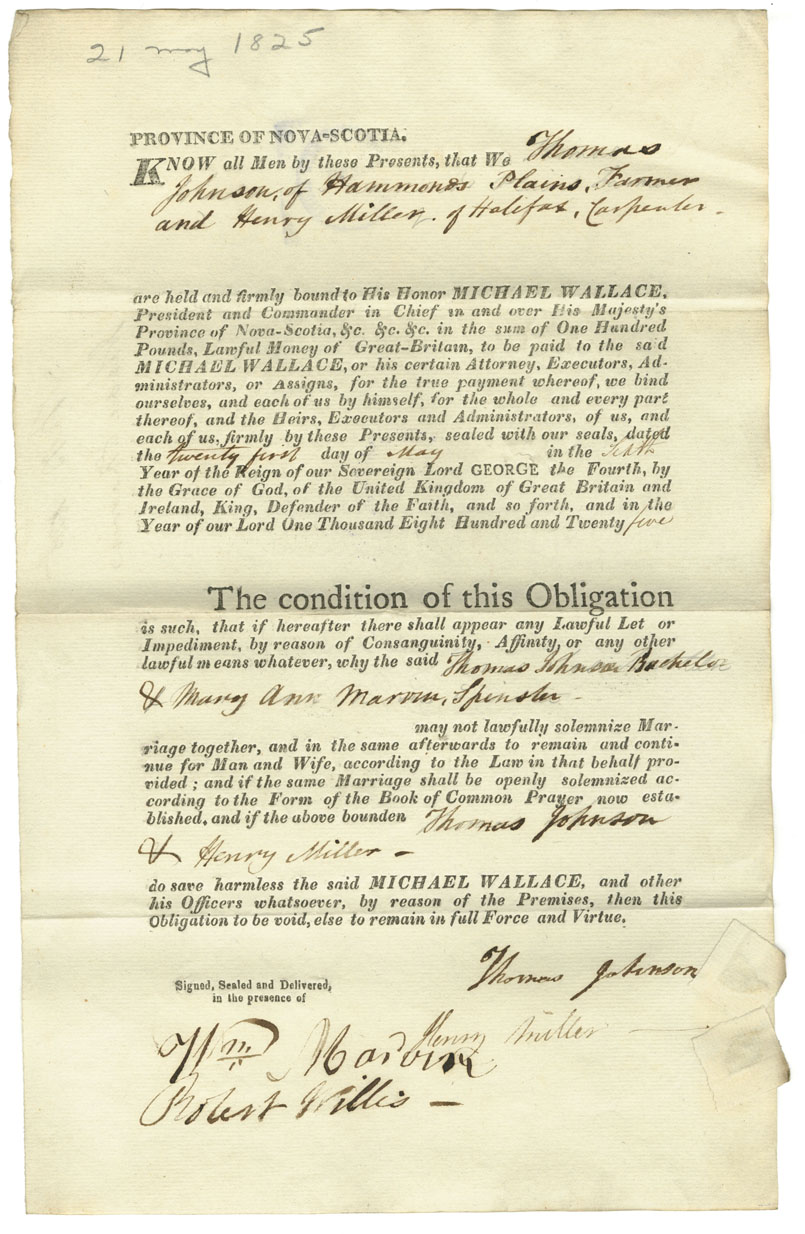 21 may 1825
PROVINCE OF NOVA-SCOTIA.
KNOW all Men by these Presents, that We Thomas
Johnson, of Hammonds Plains, Farmer
and Henry Miller of Halifax, Carpenter
are held and firmly bound to His Honor MICHAEL WALLACE,
President and Commander in Chief in and over His Majesty's
Province of Nova-Scotia, &c. &c. &c. in the sum of One Hundred
Pounds, Lawful Money of Great-Britain, to be paid to the said
MICHAEL WALLACE, or his certain Attorney, Executors, Ad-
ministrators, or Assigns, for the true payment whereof, we bind
ourselves, and each of us by himself, for the whole and every part
thereof, and the Heirs, Executors and Administrators, of us, and
each of us, firmly by these Presents, sealed with our seals, dated
the twenty first day of May in the
Year of the Reign of our Sovereign Lord GEORGE the Fourth, by
the Grace of God, of the United Kingdom of Great Britain and
Ireland, King, Defender of the Faith, and so forth, and in the
Year of our Lord One Thousand Eight Hundred and Twenty five
The condition of this Obligation
is such, that if hereafter there shall appear any Lawful Let or
Impediment, by reason of Consanguinity, Affinity, or any other
lawful means whatever, why the said Thomas Johnson Bachelor
& Mary Ann Marvin, Spinster -
may not lawfully solemnize Mar-
riage together, and in the same afterwards to remain and conti-
nue for Man and Wife, according to the Law in that behalf pro-
vided; and if the same Marriage shall be openly solemnized ac-
cording to the Form of the Book of Common Prayer now esta-
blished, and if the above bounden Thomas Johnson
& Henry Miller -
do save harmless the said MICHAEL WALLACE, and other
his Officers whatsoever, by reason of the Premises, then this
Obligation to be void, else to remain in full Force and Virtue.
Thomas Johnson
Signed, Sealed and Delivered,
in the presence of
Henry Miller
Wm. Marvin
Robert Willis -